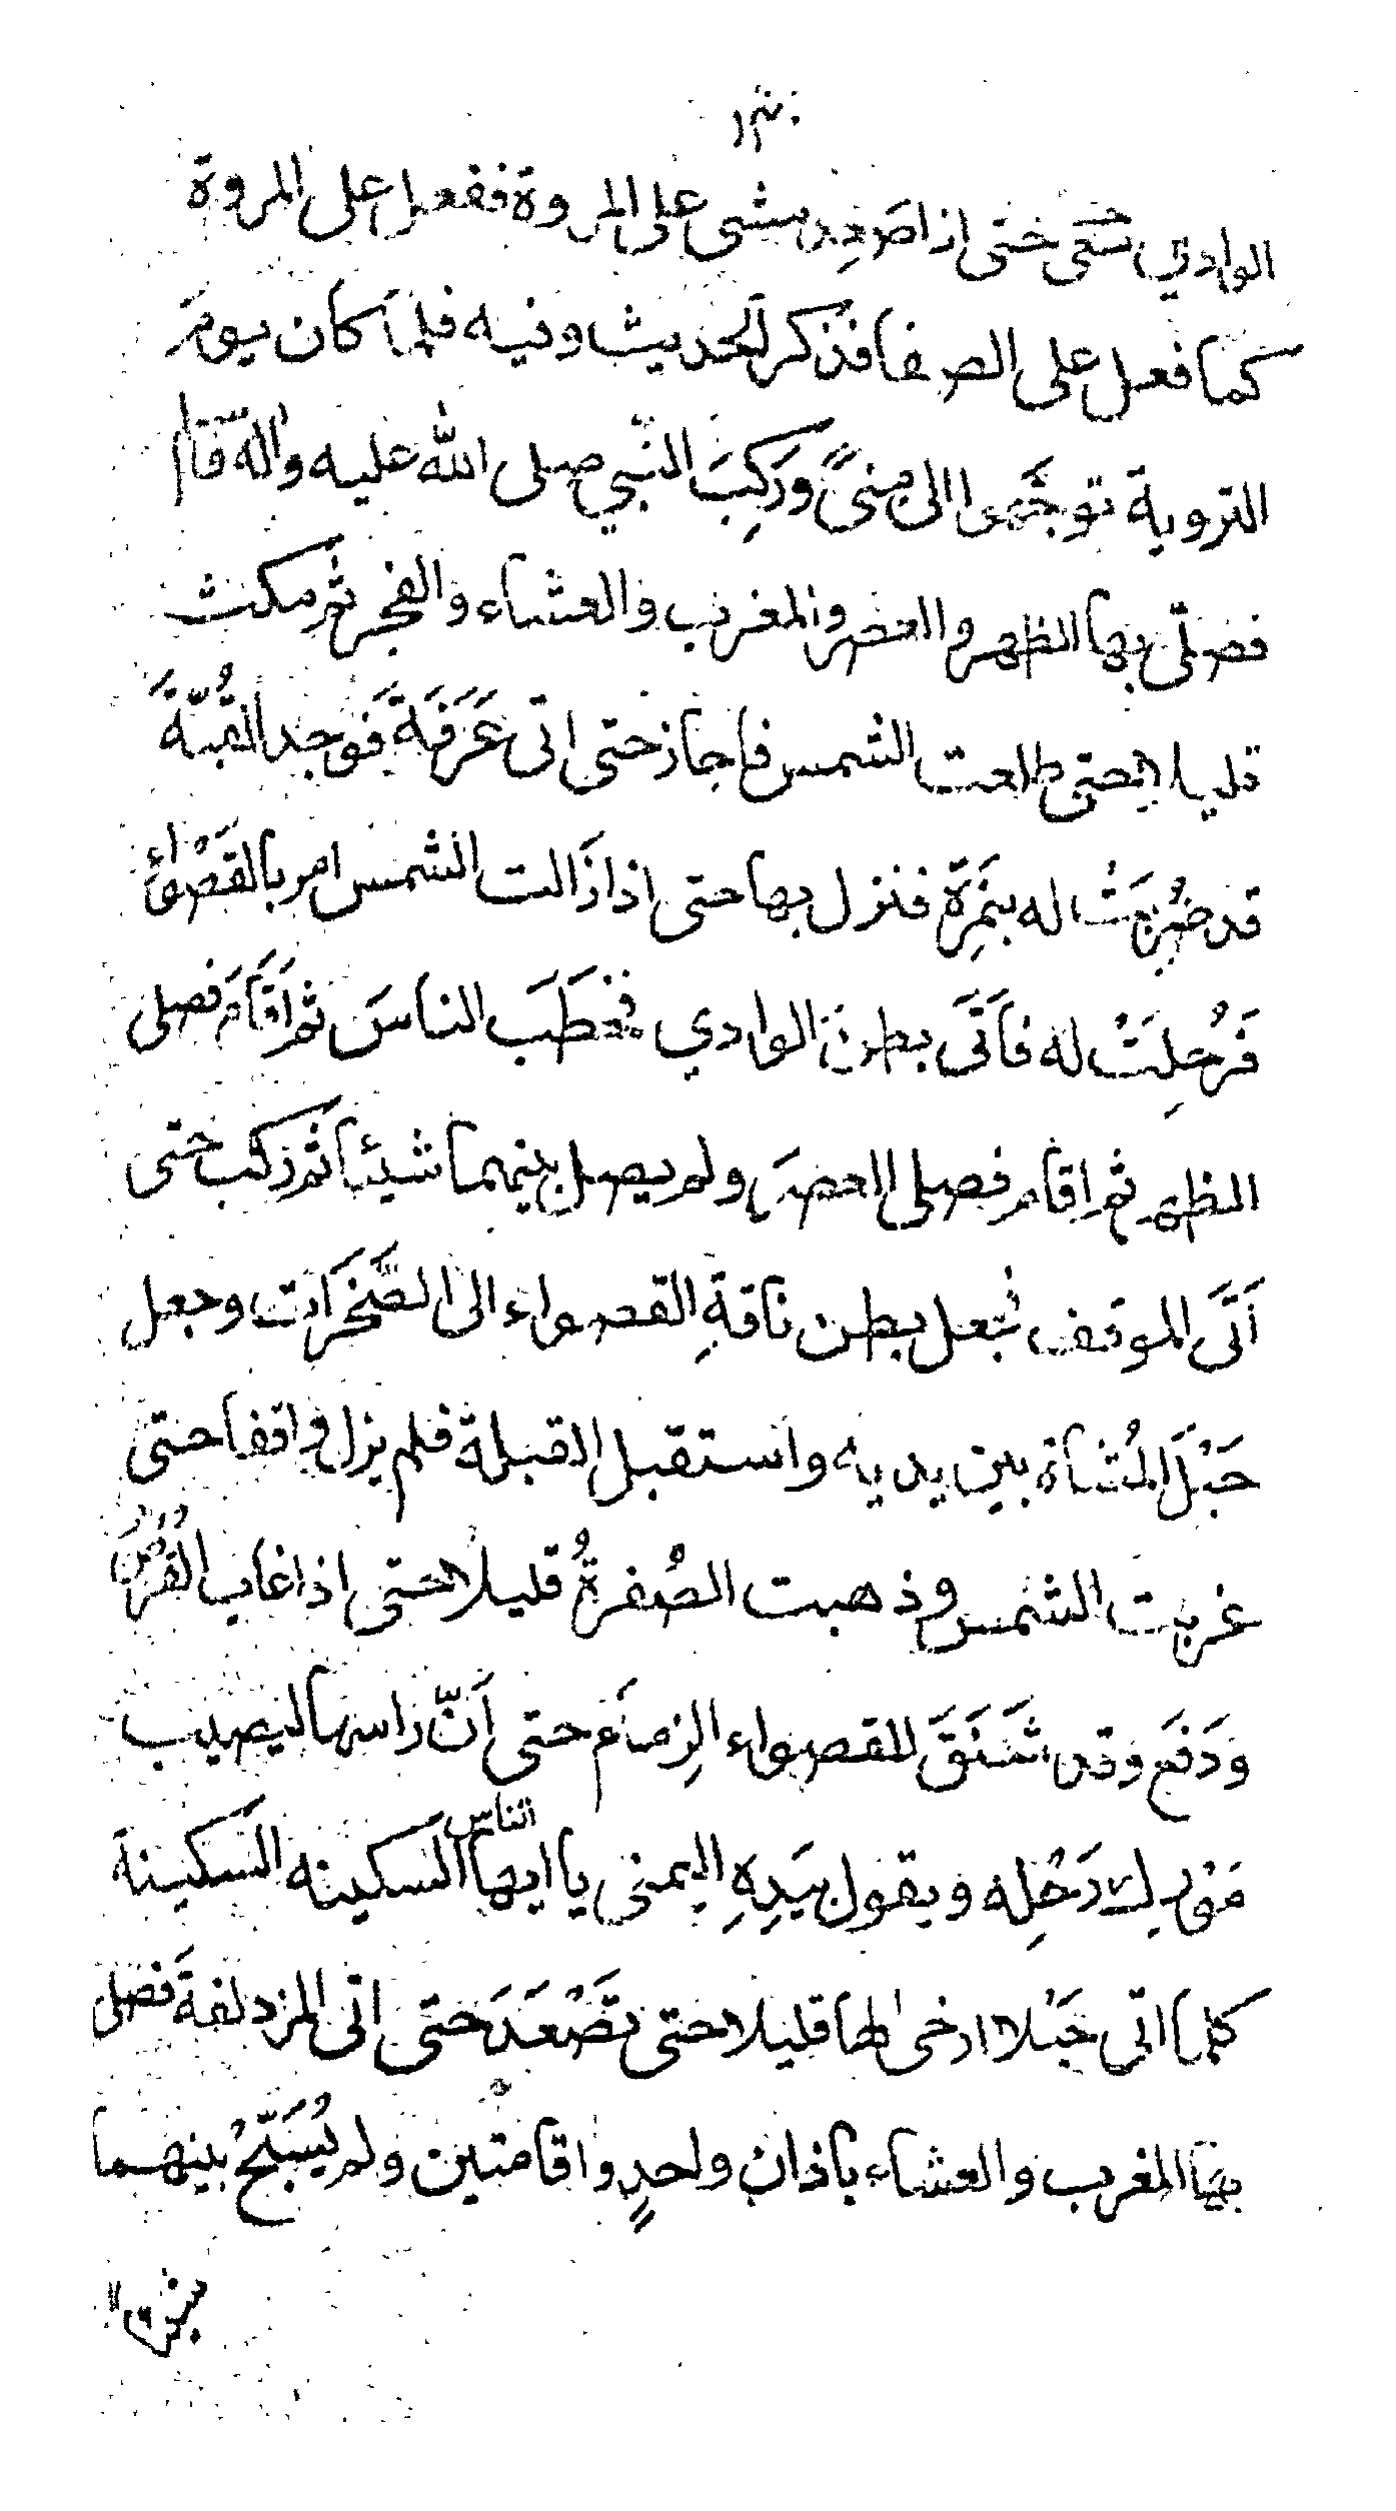 ١٣٠
الوادي سَعَى حتى اذا صَعِدَ مشى على المروة ففعل على المروة
كما فعل على الصفا فذكر الحديث وفيه فلما كان يومَ
التروية توجَّهوا الى منىً ورَكِبَ النّبي صلى الله عليه واٰله قال
فصلّى بها الظهر والعصر والمغرب والعشاء والفجر ثم مكث
قليلا حتى طلعت الشمس فاجاز حتى اتى عَرَفَةَ فَوَجد القُبّةَ
قد ضُرِبَتْ له بنَمِرَةَ فنزل بها حتى اذا زَالت الشمس امر بالقَصْواءِ
فَرُحِلَتْ له فأتَى بطنَ الوادي فخطَبَ الناسَ ثم اقَامَ فصلى
الظهر ثم اقام فصلى العصرَ ولم يصل بينهما شيئا ثم ركب حتى
اَتَى الموقف فجعل بطن ناقةِ القصواء الى الصَّخَرَات وجعل
حَبْلَ المُشَاة بين يديه واستقبل القبلة فلم يزل واقفا حتى
غربت الشمس وذهبت الصُفرةُ قليلا حتى اذا غاب القُرْصُ
وَدَفَع وقد شَنَقَ للقصواء الزِمامَ حتى اَنّ راسها ليصيب
مَوْرِكَ رَحْلِه ويقول بيَدِهِ اليمنى يا ايها الناس السَكينه السَكينة
كلما اتى حَبْلا ارخى لها قليلا حتى تَصْعَدَ حتى اتى المزدلفةَ فصلى
بهَا المغرب والعشاء باذان واحدٍ واقامتين ولم يُسَبّحْ بينهما